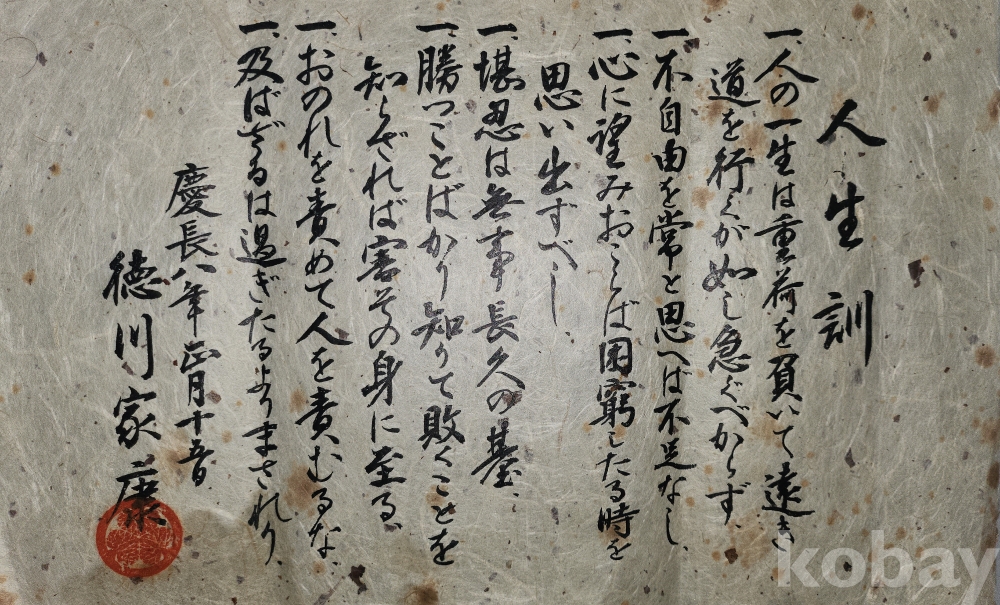 人生訓
一、人の一生は重荷を負いて遠き
道を行くが如し急ぐべからず、
一、不自由を常と思へば不足なし、
一、心に望みおこらば困窮したる時を
思い出すべし、
一、堪忍は無事長久の基、
一、勝つことばかり知りて敗くことを
知らざれば害その身に至る、
一、おのれを責めて人を責むるな、
一、及ばざるは過ぎたるよりまされり、
慶長八年正月十五日
徳川家康
kobay